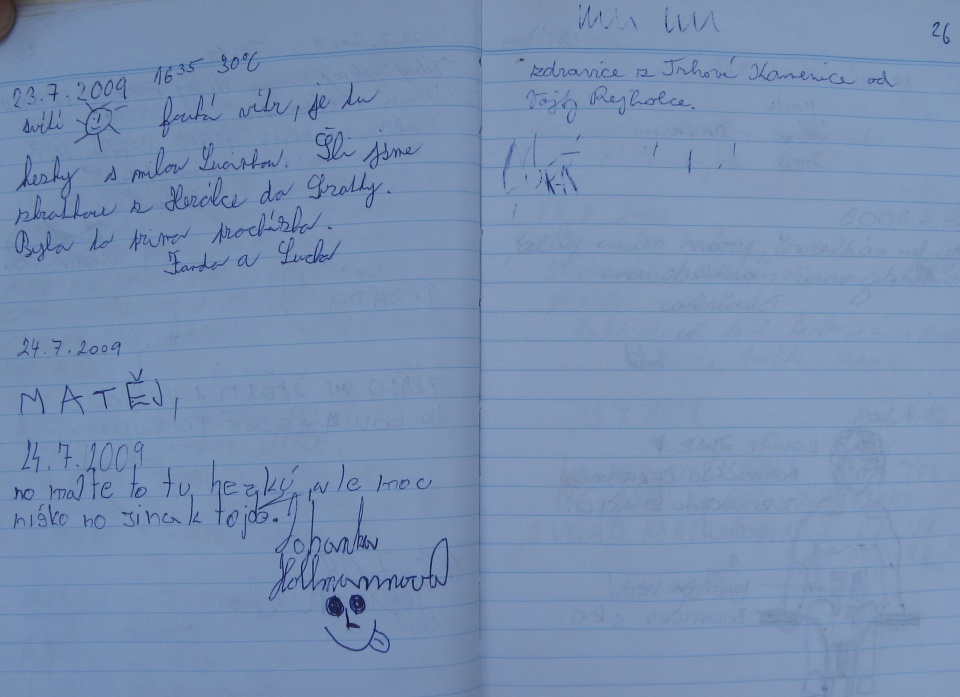 23.7.2009 16³⁵ 30°C
svítí fouká vítr, je tu
hezky s milou Lucinkou. Šli jsme
zkratkou z Herálce do Svratky.
Byla to prima procházka.
Fanda a Lucka
24.7.2009
MATĚJ,
24.7.2009
no máte to tu hezký, ale moc
nisko no jinak to jdo.!
Johanka
Hollmannová
26
zdravice z Trhové Kamenice od
Vojty Rejholce.